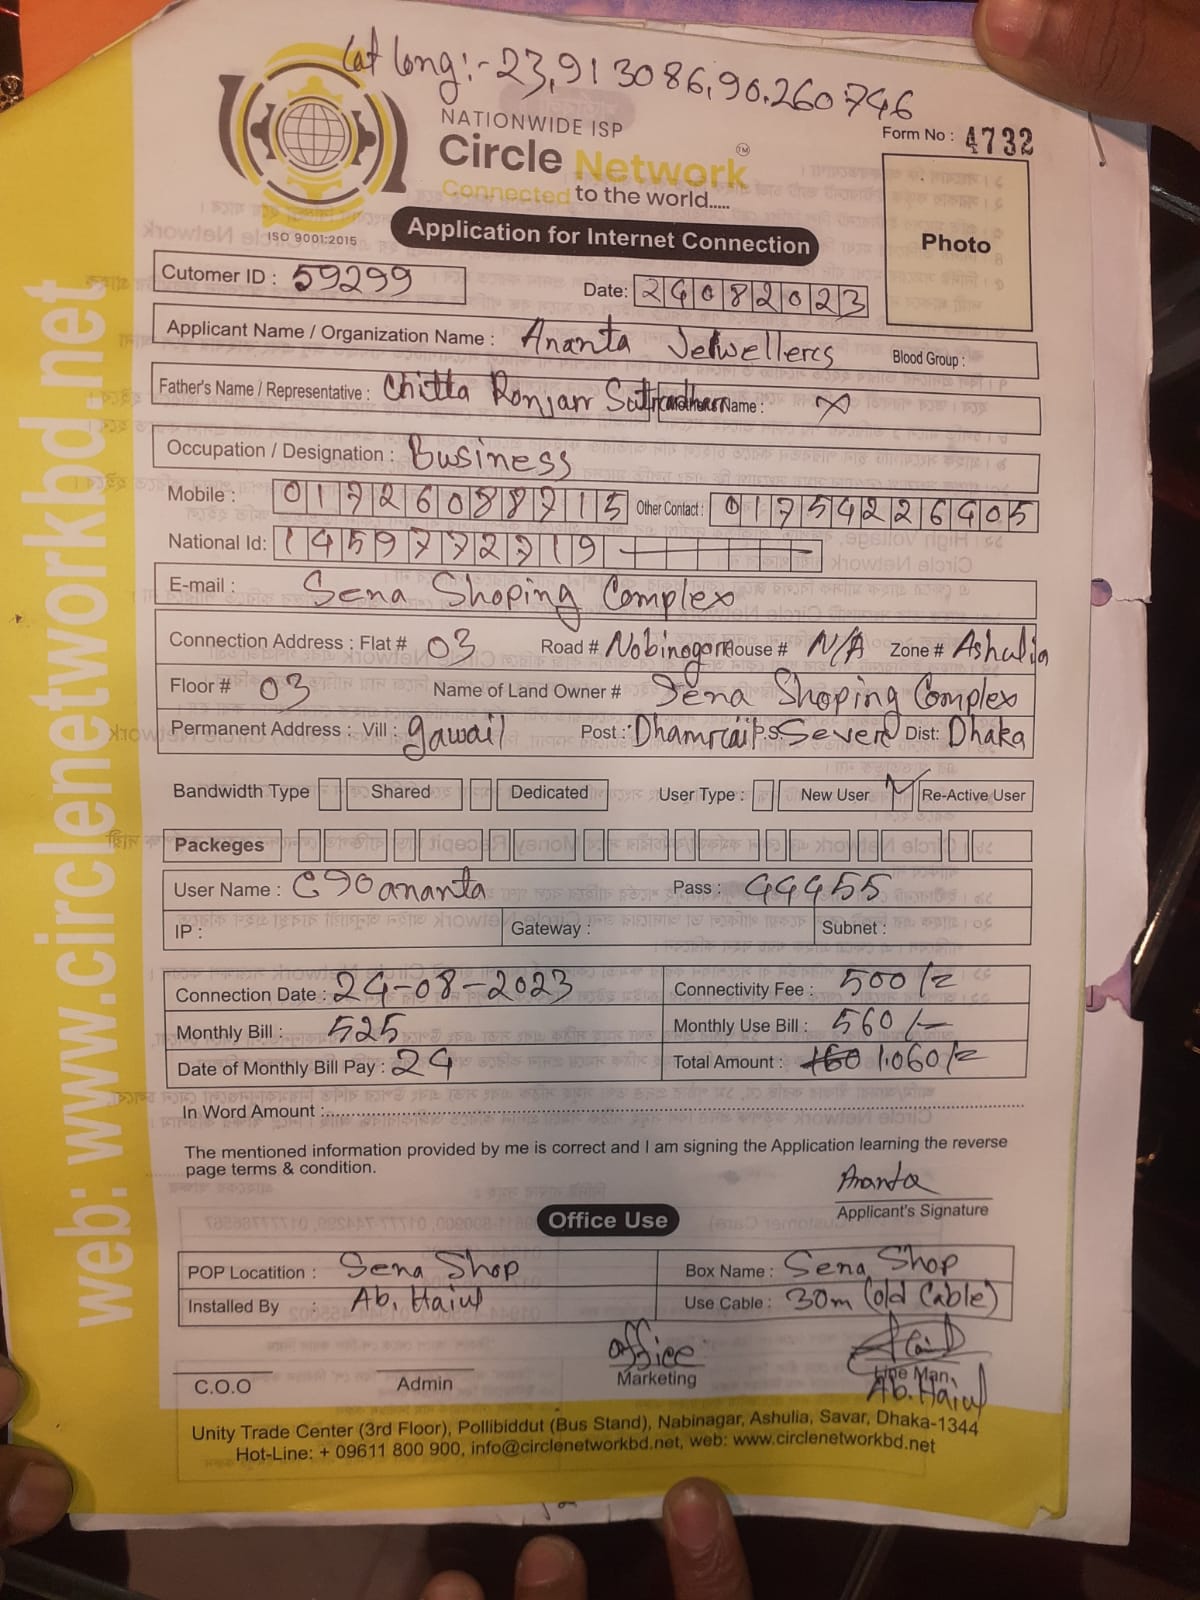 Lat long:-23,913086,90.260746
NATIONWIDE ISP
Form No : 4732
Circle Network TM
Connected to the world.....
ISO 9001:2015
Application for Internet Connection
Photo
Cutomer ID : 59299
Date: 24082023
Applicant Name / Organization Name : Ananta Jewellers Blood Group :
Father's Name / Representative : Chitta Ronjan Sutradhar Name : X
Occupation / Designation : Business
Mobile : 01726088715 Other Contact : 01754226405
National Id: 1459772719
E-mail : Sena Shoping Complex
Connection Address : Flat # 03 Road # Nobinogor House # N/A Zone # Ashulia
Floor # 03 Name of Land Owner # Sena Shoping Complex
Permanent Address : Vill : gawail Post : Dhamrai P.S: Saver Dist: Dhaka
Bandwidth Type Shared Dedicated User Type : New User Re-Active User
Packeges
User Name : C90ananta Pass : 44455
IP : Gateway : Subnet :
Connection Date : 24-08-2023 Connectivity Fee : 500/=
Monthly Bill : 525 Monthly Use Bill : 560/-
Date of Monthly Bill Pay : 24 Total Amount : 1060/=
In Word Amount :
The mentioned information provided by me is correct and I am signing the Application learning the reverse
page terms & condition.
Ananta
Applicant's Signature
Office Use
POP Locatition : Sena Shop Box Name : Sena Shop
Installed By : Ab. Haiul Use Cable : 30m (old Cable)
office
C.O.O Admin Marketing Line Man
Ab. Haiul
Unity Trade Center (3rd Floor), Pollibiddut (Bus Stand), Nabinagar, Ashulia, Savar, Dhaka-1344
Hot-Line: + 09611 800 900, info@circlenetworkbd.net, web: www.circlenetworkbd.net
web: www.circlenetworkbd.net